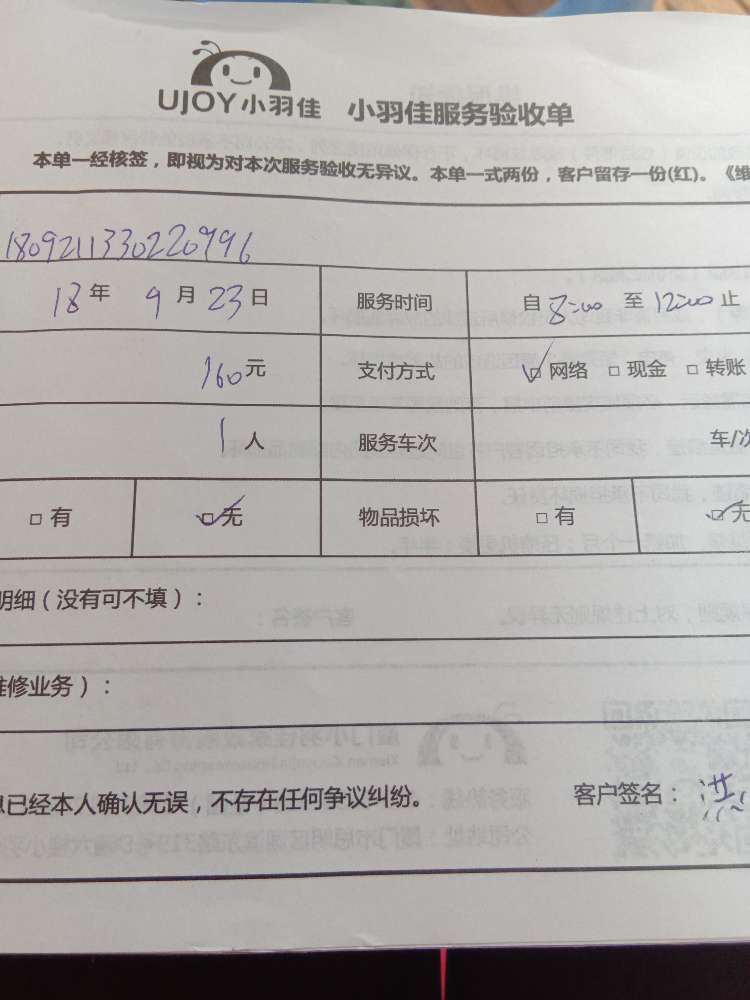 UJOY小羽佳 小羽佳服务验收单
本单一经核签，即视为对本次服务验收无异议。本单一式两份，客户留存一份(红)。《维
180921133022099​6
18年 9月23日 服务时间 自8:00至12:00止
160元 支付方式 ☑网络 □现金 □转账
1人 服务车次 车/次
□有 ☑无 物品损坏 □有 ☑无
明细（没有可不填）：
维修业务）：
息已经本人确认无误，不存在任何争议纠纷。 客户签名：洪